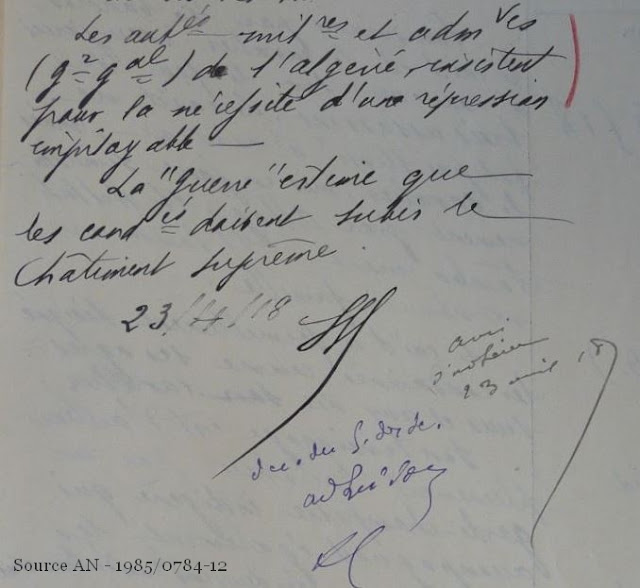 Les aut^és mil^res et adm^ves
(g^r g^al) de l'algérie, insistent
pour la nécessité d'une répression
impitoyable —
La "guerre" estime que
les cond^és doivent subir le
Châtiment suprême.
23/4/18
avis
23 avril 18
Source AN - 1985/0784-12